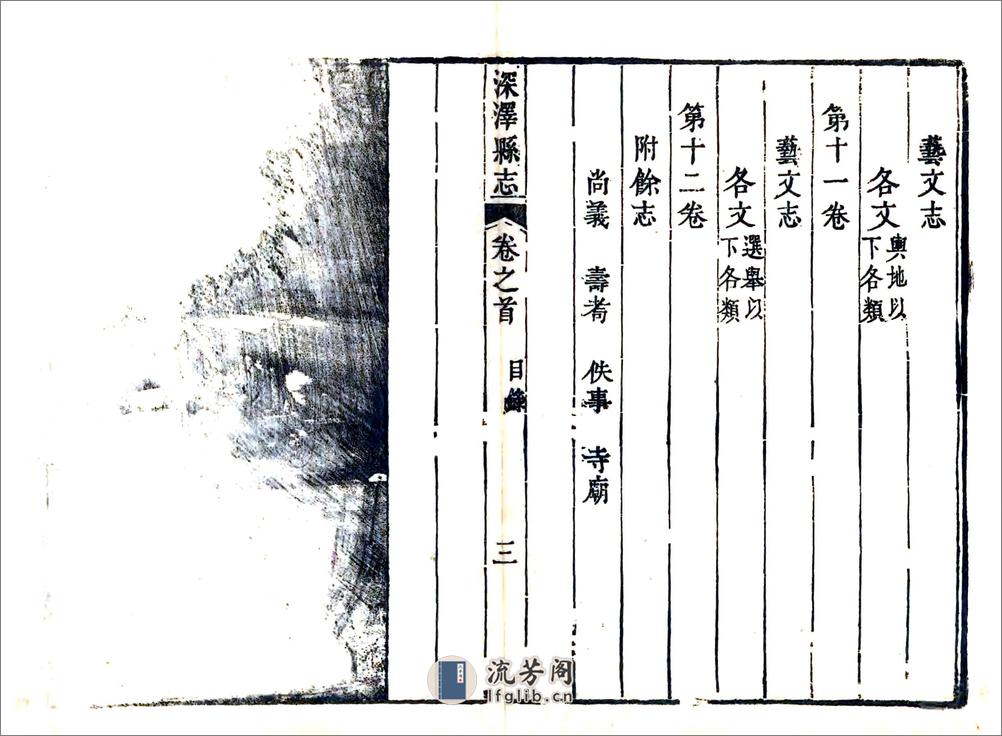 藝文志
各文輿地以下各類
第十一卷
藝文志
各文選舉以下各類
第十二卷
附餘志
尚義　壽耇　佚事　寺廟
深澤縣志　卷之首　目錄　三
流芳阁
lfglib.cn